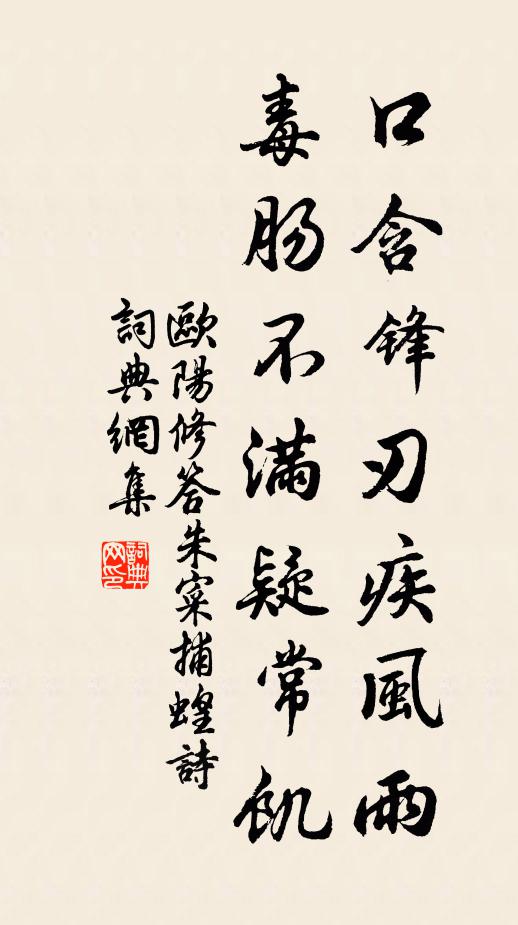 口含锋刃疾風雨
毒肠不满疑常飢
歐陽修答朱寀捕蝗詩
詞典網集
詞典网印